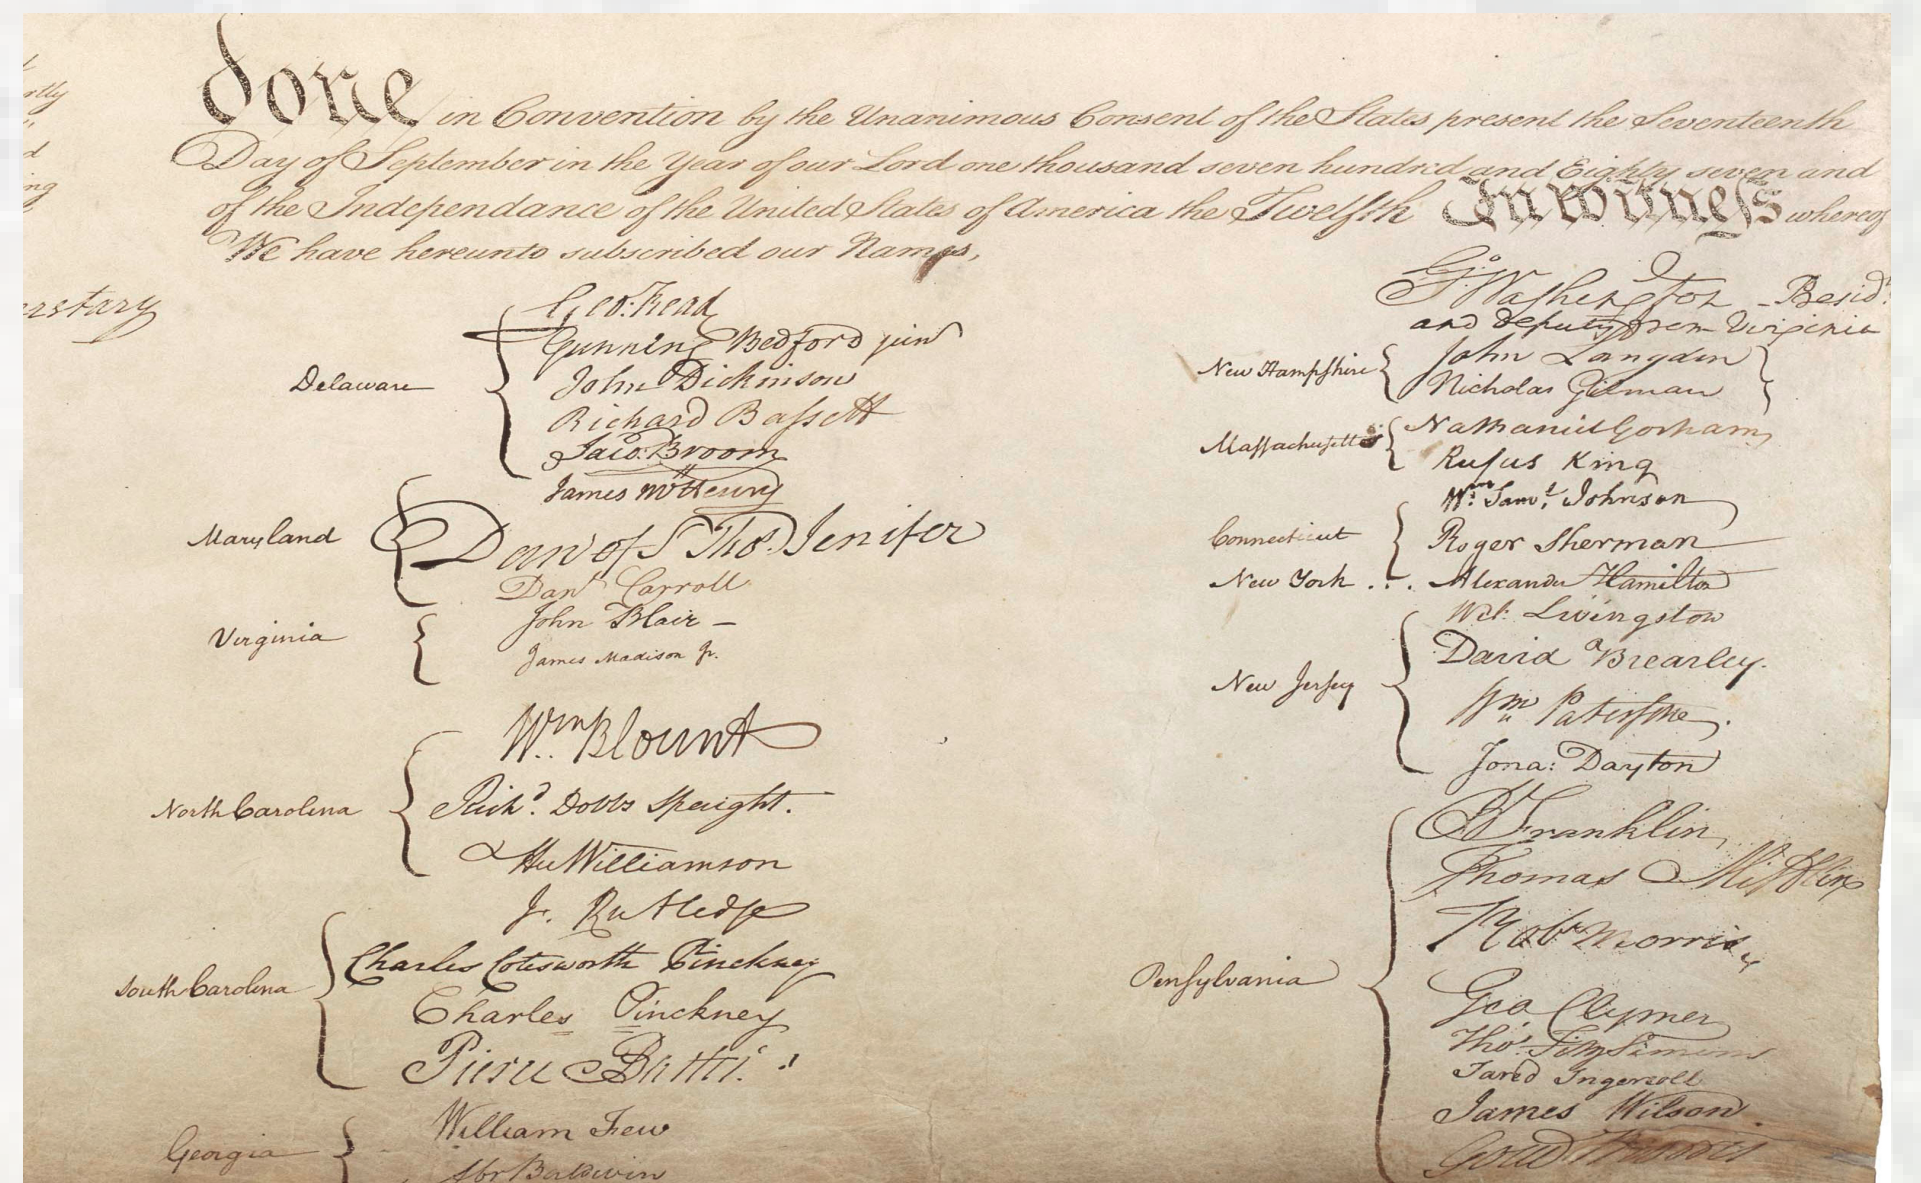 done in Convention by the Unanimous Consent of the States present the Seventeenth
Day of September in the Year of our Lord one thousand seven hundred and Eighty seven and
of the Independance of the United States of America the Twelfth In Witness whereof
We have hereunto subscribed our Names,
Delaware
Geo: Read
Gunning Bedford jun
John Dickinson
Richard Bassett
Jaco: Broom
Maryland
James McHenry
Dan of St Thos. Jenifer
Danl Carroll
Virginia
John Blair —
James Madison Jr.
North Carolina
Wm. Blount
Richd. Dobbs Spaight.
Hu Williamson
South Carolina
J. Rutledge
Charles Cotesworth Pinckney
Charles Pinckney
Pierce Butler.
Georgia
William Few
Abr Baldwin
Go. Washington — Presidt.
and deputy from Virginia
New Hampshire
John Langdon
Nicholas Gilman
Massachusetts
Nathaniel Gorham
Rufus King
Connecticut
Wm. Saml. Johnson
Roger Sherman
New York . . . Alexander Hamilton
New Jersey
Wil: Livingston
David Brearley.
Wm. Paterson.
Jona: Dayton
Pensylvania
B Franklin
Thomas Mifflin
Robt Morris
Geo. Clymer
Thos. FitzSimons
Jared Ingersoll
James Wilson
Gouv Morris